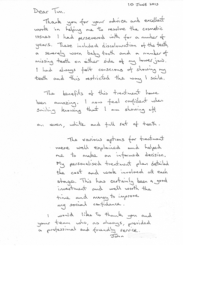 10 JUNE 2012
Dear Tim,
Thank you for your advice and excellent
work in helping me to resolve the cosmetic
issues I had persevered with for a number of
years. These included discolouration of the teeth
a severely worn baby tooth and a number of
missing teeth on either side of my lower jaw.
I had always felt conscious of showing my
teeth and this restricted the way I smile.
The benefits of this treatment have
been amazing. I now feel confident when
smiling knowing that I am showing off
an even, white and full set of teeth.
The various options for treatment
were well explained and helped
me to make an informed decision.
My personalised treatment plan detailed
the cost and work involved at each
stage. This has certainly been a good
investment and well worth the
time and money to improve
my social confidence.
I would like to thank you and
your team who, as always, provided
a professional and friendly service.
John